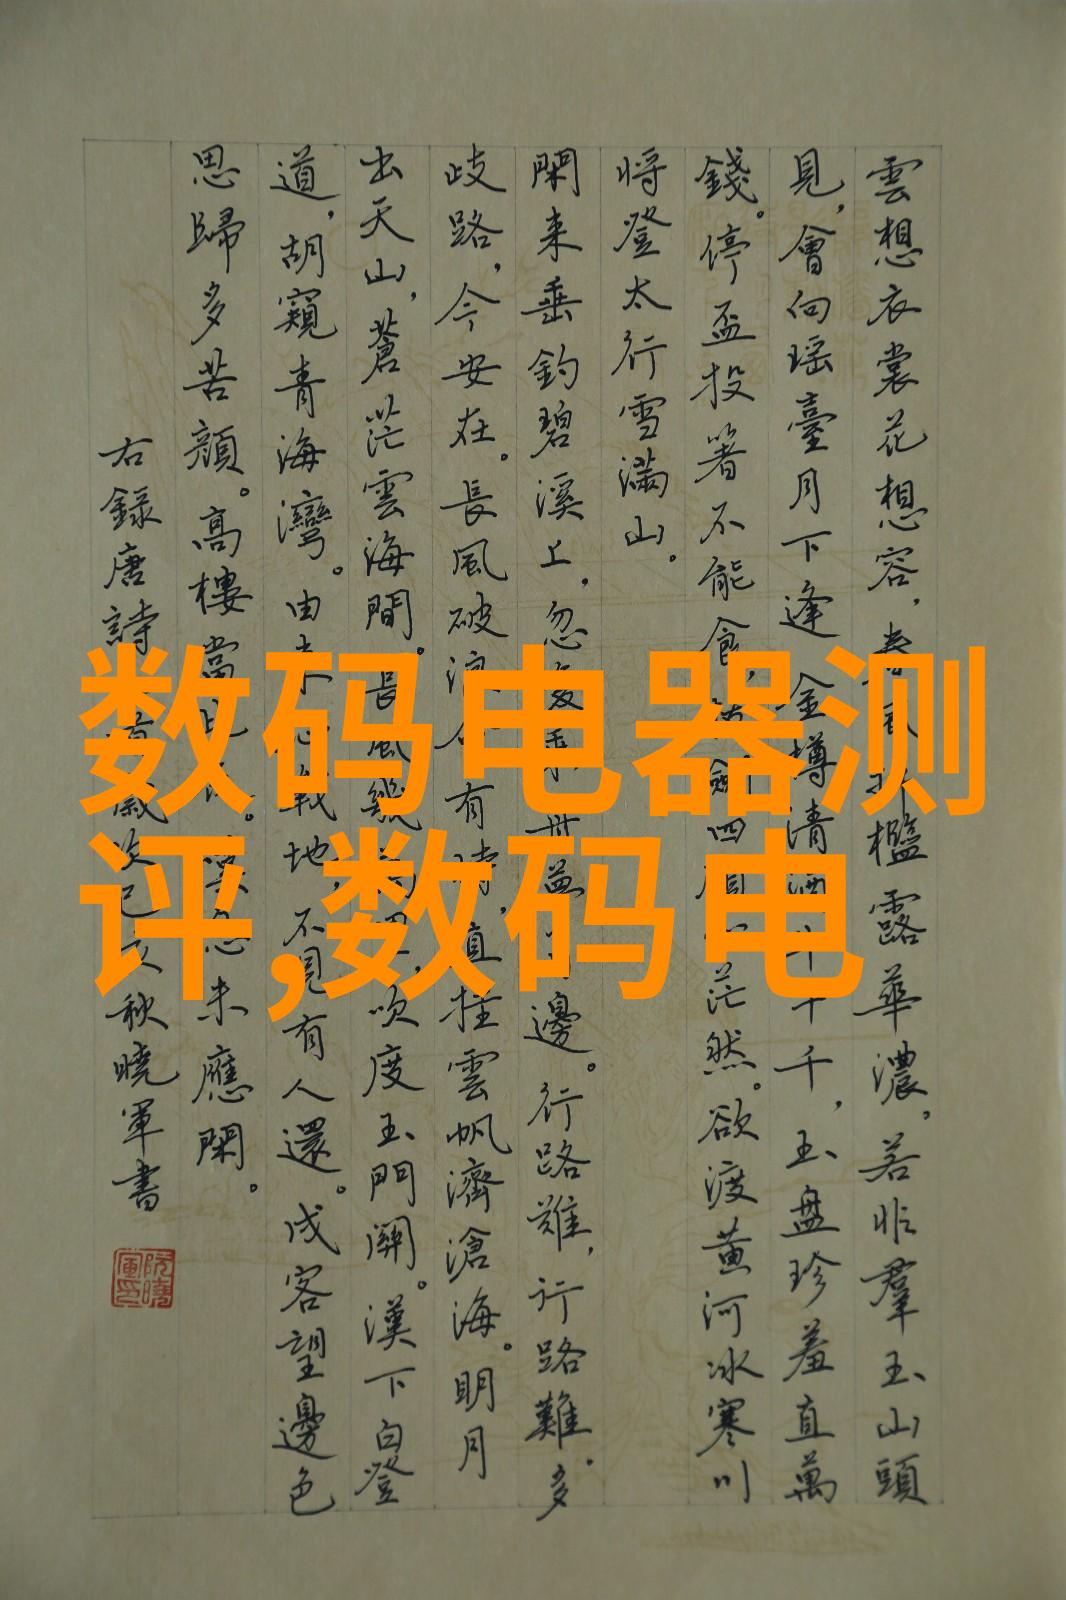 雲想衣裳花想容，春風 檻露華濃。若非羣玉山頭
見，會向瑶臺月下逢 金樽清酒 千，玉盤珍羞直萬
錢。停盃投箸不能食， 四 茫然。欲渡黄河冰寒川
将登太行雪滿山。
閑来垂釣碧溪上，忽 邊。行路難，行路難。多
歧路，今安在。長風破浪 有時，直挂雲帆濟滄海。明月
出天山，蒼茫雲海間。長風幾 吹度玉門關。漢下白登
道，胡窺青海灣。由来 戰地，不見有人還。戍客望邊色
思歸多苦顔。高樓當 未應閑。
右録唐詩 歲次己 秋曉軍書
阮曉軍印
数码电器测
评,数码电